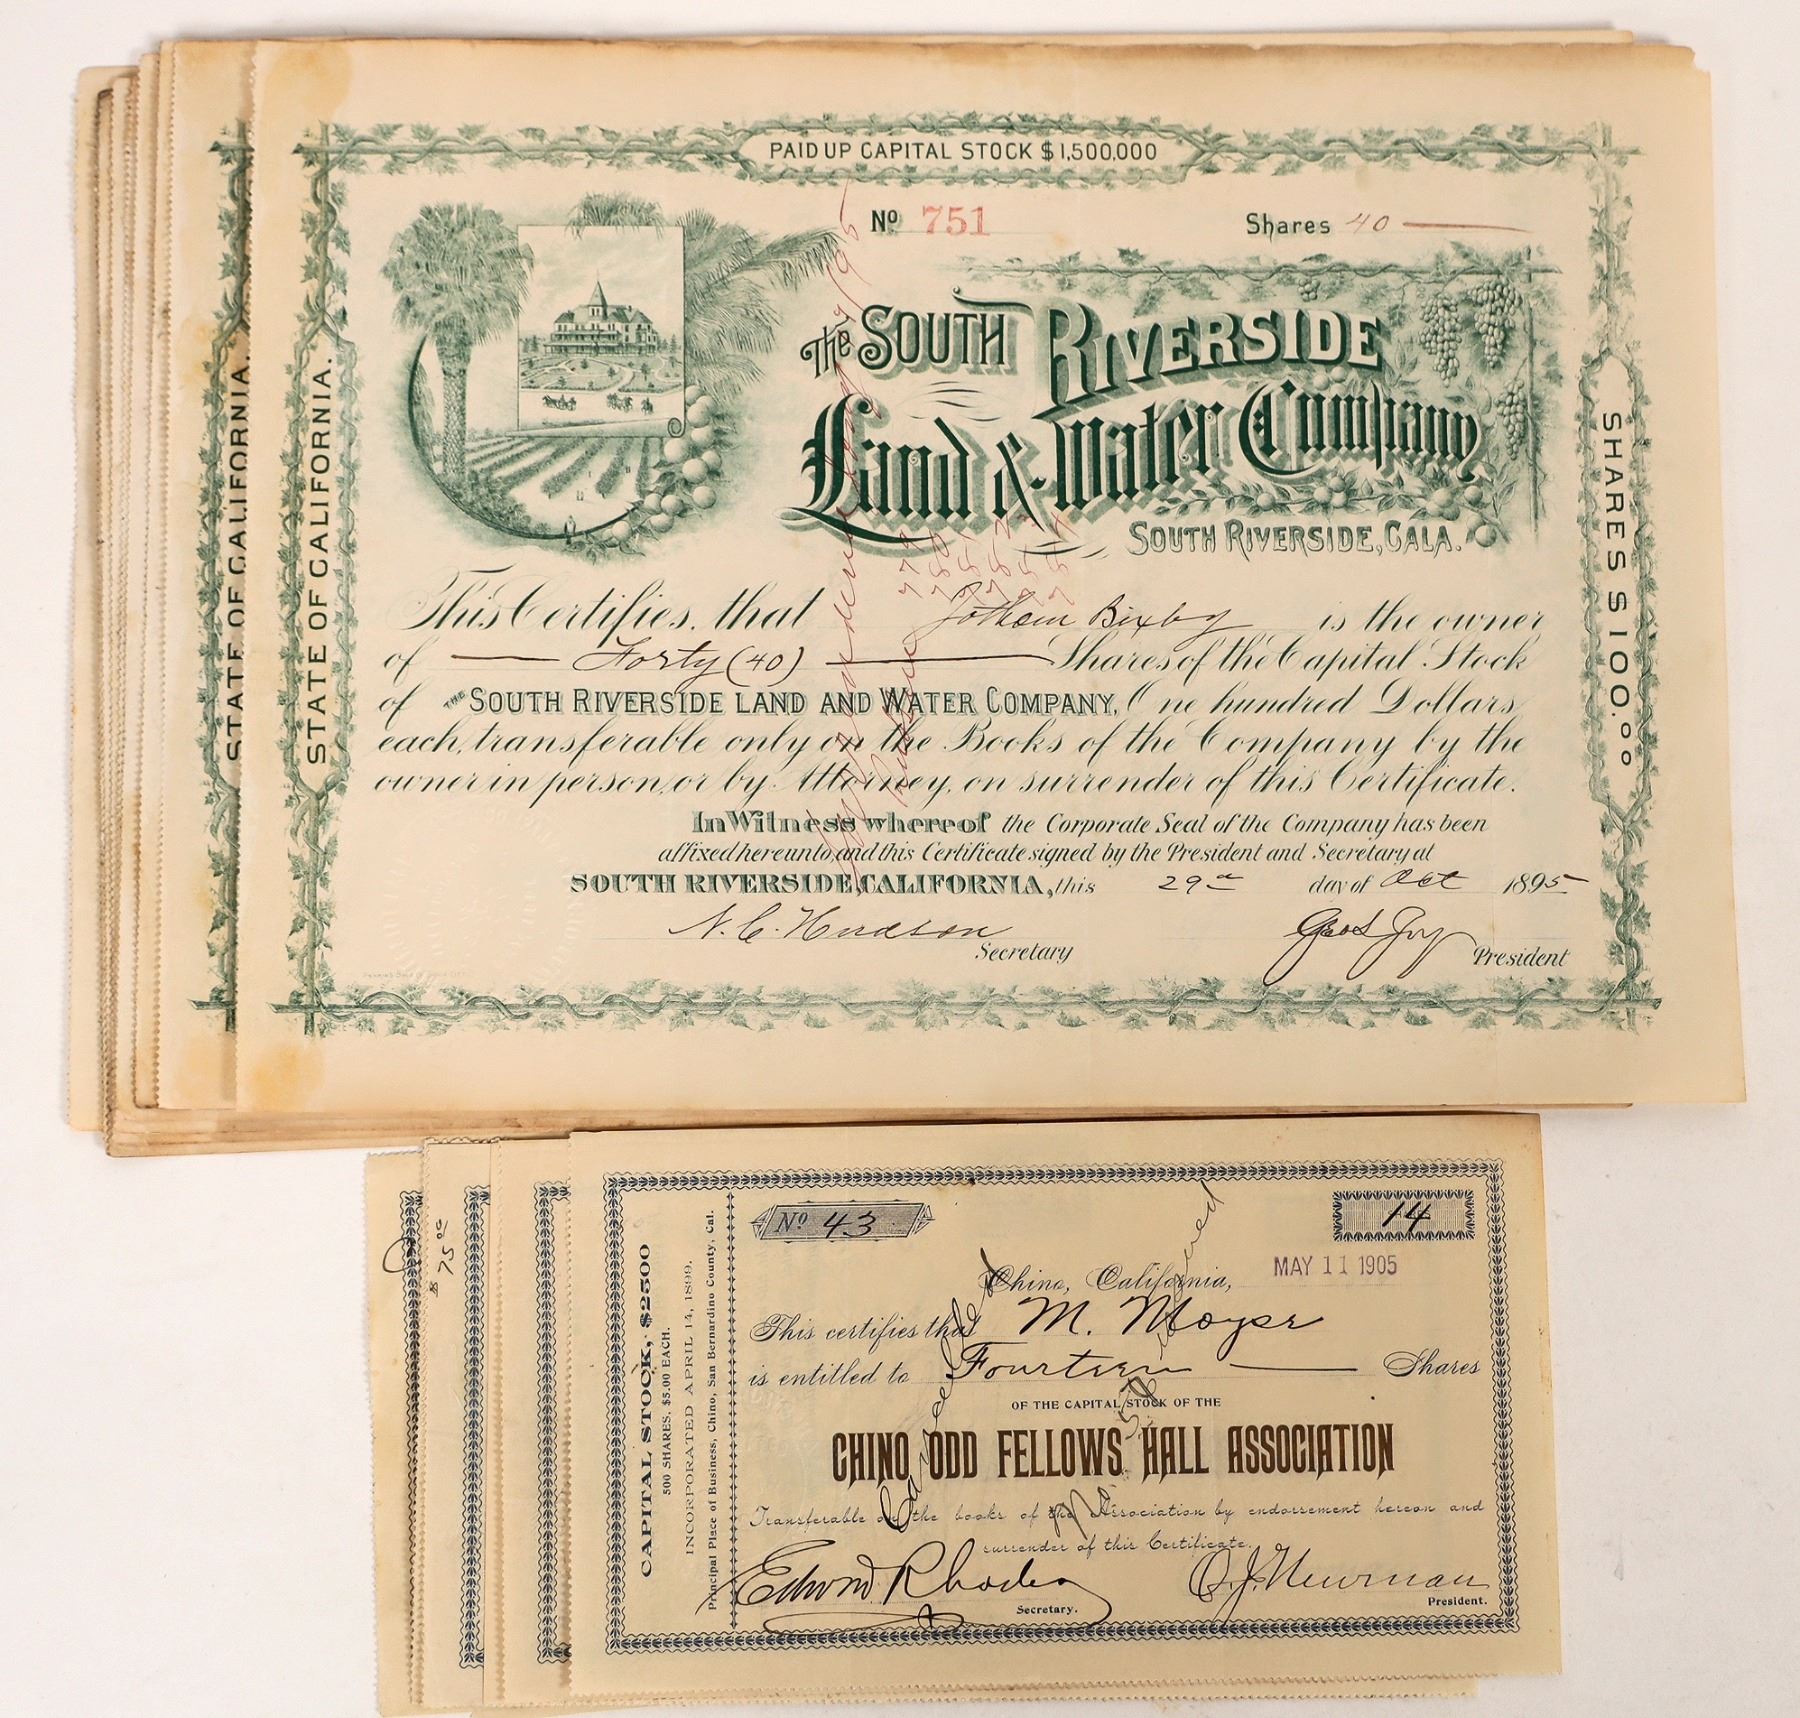 PAID UP CAPITAL STOCK $1,500,000
No 751
Shares 40
The SOUTH RIVERSIDE
Land & Water Company
SOUTH RIVERSIDE, CALA.
779
780
781
782
783
784
This Certifies, that Jotham Bixby is the owner
of Forty (40) Shares of the Capital Stock
of THE SOUTH RIVERSIDE LAND AND WATER COMPANY, One hundred Dollars
each, transferable only on the Books of the Company by the
owner in person, or by Attorney, on surrender of this Certificate.
In Witness whereof the Corporate Seal of the Company has been
affixed hereunto, and this Certificate signed by the President and Secretary at
SOUTH RIVERSIDE, CALIFORNIA, this 29 day of Oct 1895
N. C. Hudson
Secretary
Geo L Joy
President
STATE OF CALIFORNIA.
STATE OF CALIFORNIA.
SHARES $100.00
$75.00
CAPITAL STOCK, $2500
500 SHARES, $5.00 EACH.
INCORPORATED APRIL 14, 1899.
Principal Place of Business, Chino, San Bernardino County, Cal.
No 43
14
Chino, California, MAY 11 1905
This certifies that M. Moyer
is entitled to Fourteen Shares
OF THE CAPITAL STOCK OF THE
CHINO ODD FELLOWS HALL ASSOCIATION
Transferable on the books of the Association by endorsement hereon and
surrender of this Certificate.
Edwin Rhodes
Secretary.
O. J. Newman
President.